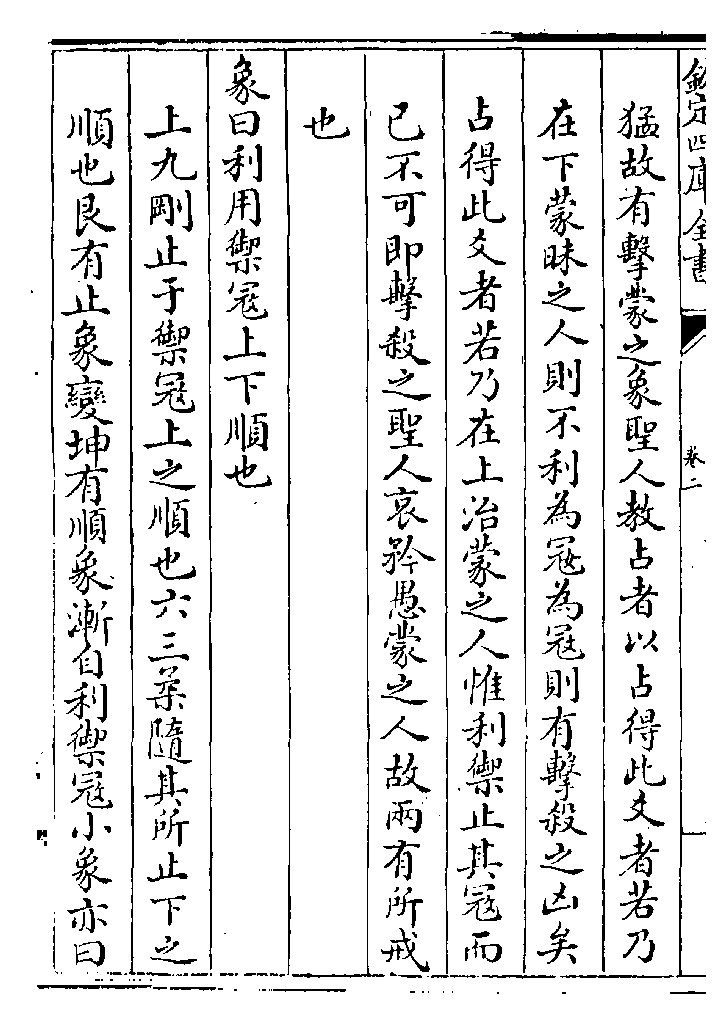 欽定四庫全書
卷二
猛故有擊蒙之象聖人教占者以占得此爻者若乃
在下蒙昧之人則不利為寇為寇則有擊殺之凶矣
占得此爻者若乃在上治蒙之人惟利禦止其寇而
已不可即擊殺之聖人哀矜愚蒙之人故兩有所戒
也
象曰利用禦寇上下順也
上九剛止于禦寇上之順也六三柔隨其所止下之
順也艮有止象變坤有順象漸自利禦寇小象亦曰